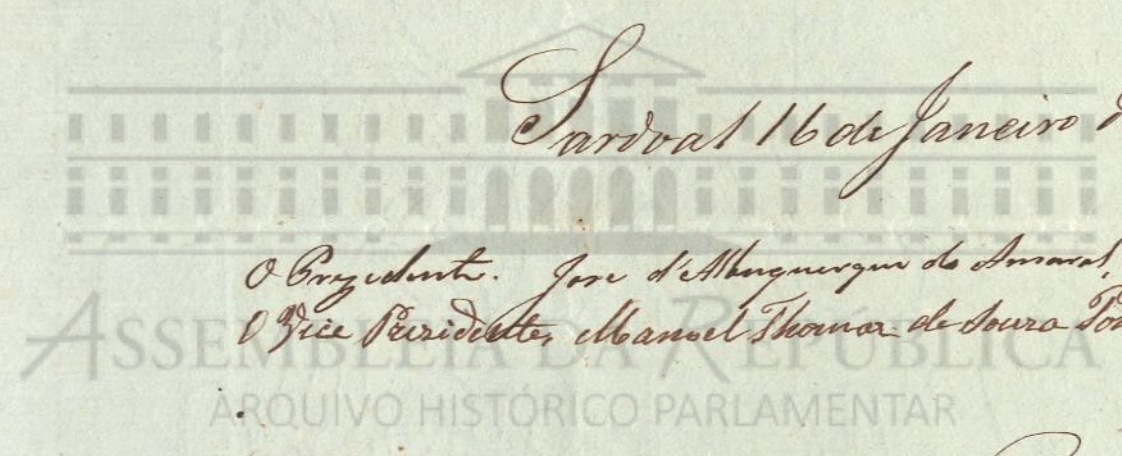 Sardoal 16 de Janeiro
O Prezidente. Jose d'Albuquerque do Amaral,
O Vice Prezidente, Manoel Thomaz de Souza
ASSEMBLEIA DA REPÚBLICA
ARQUIVO HISTÓRICO PARLAMENTAR